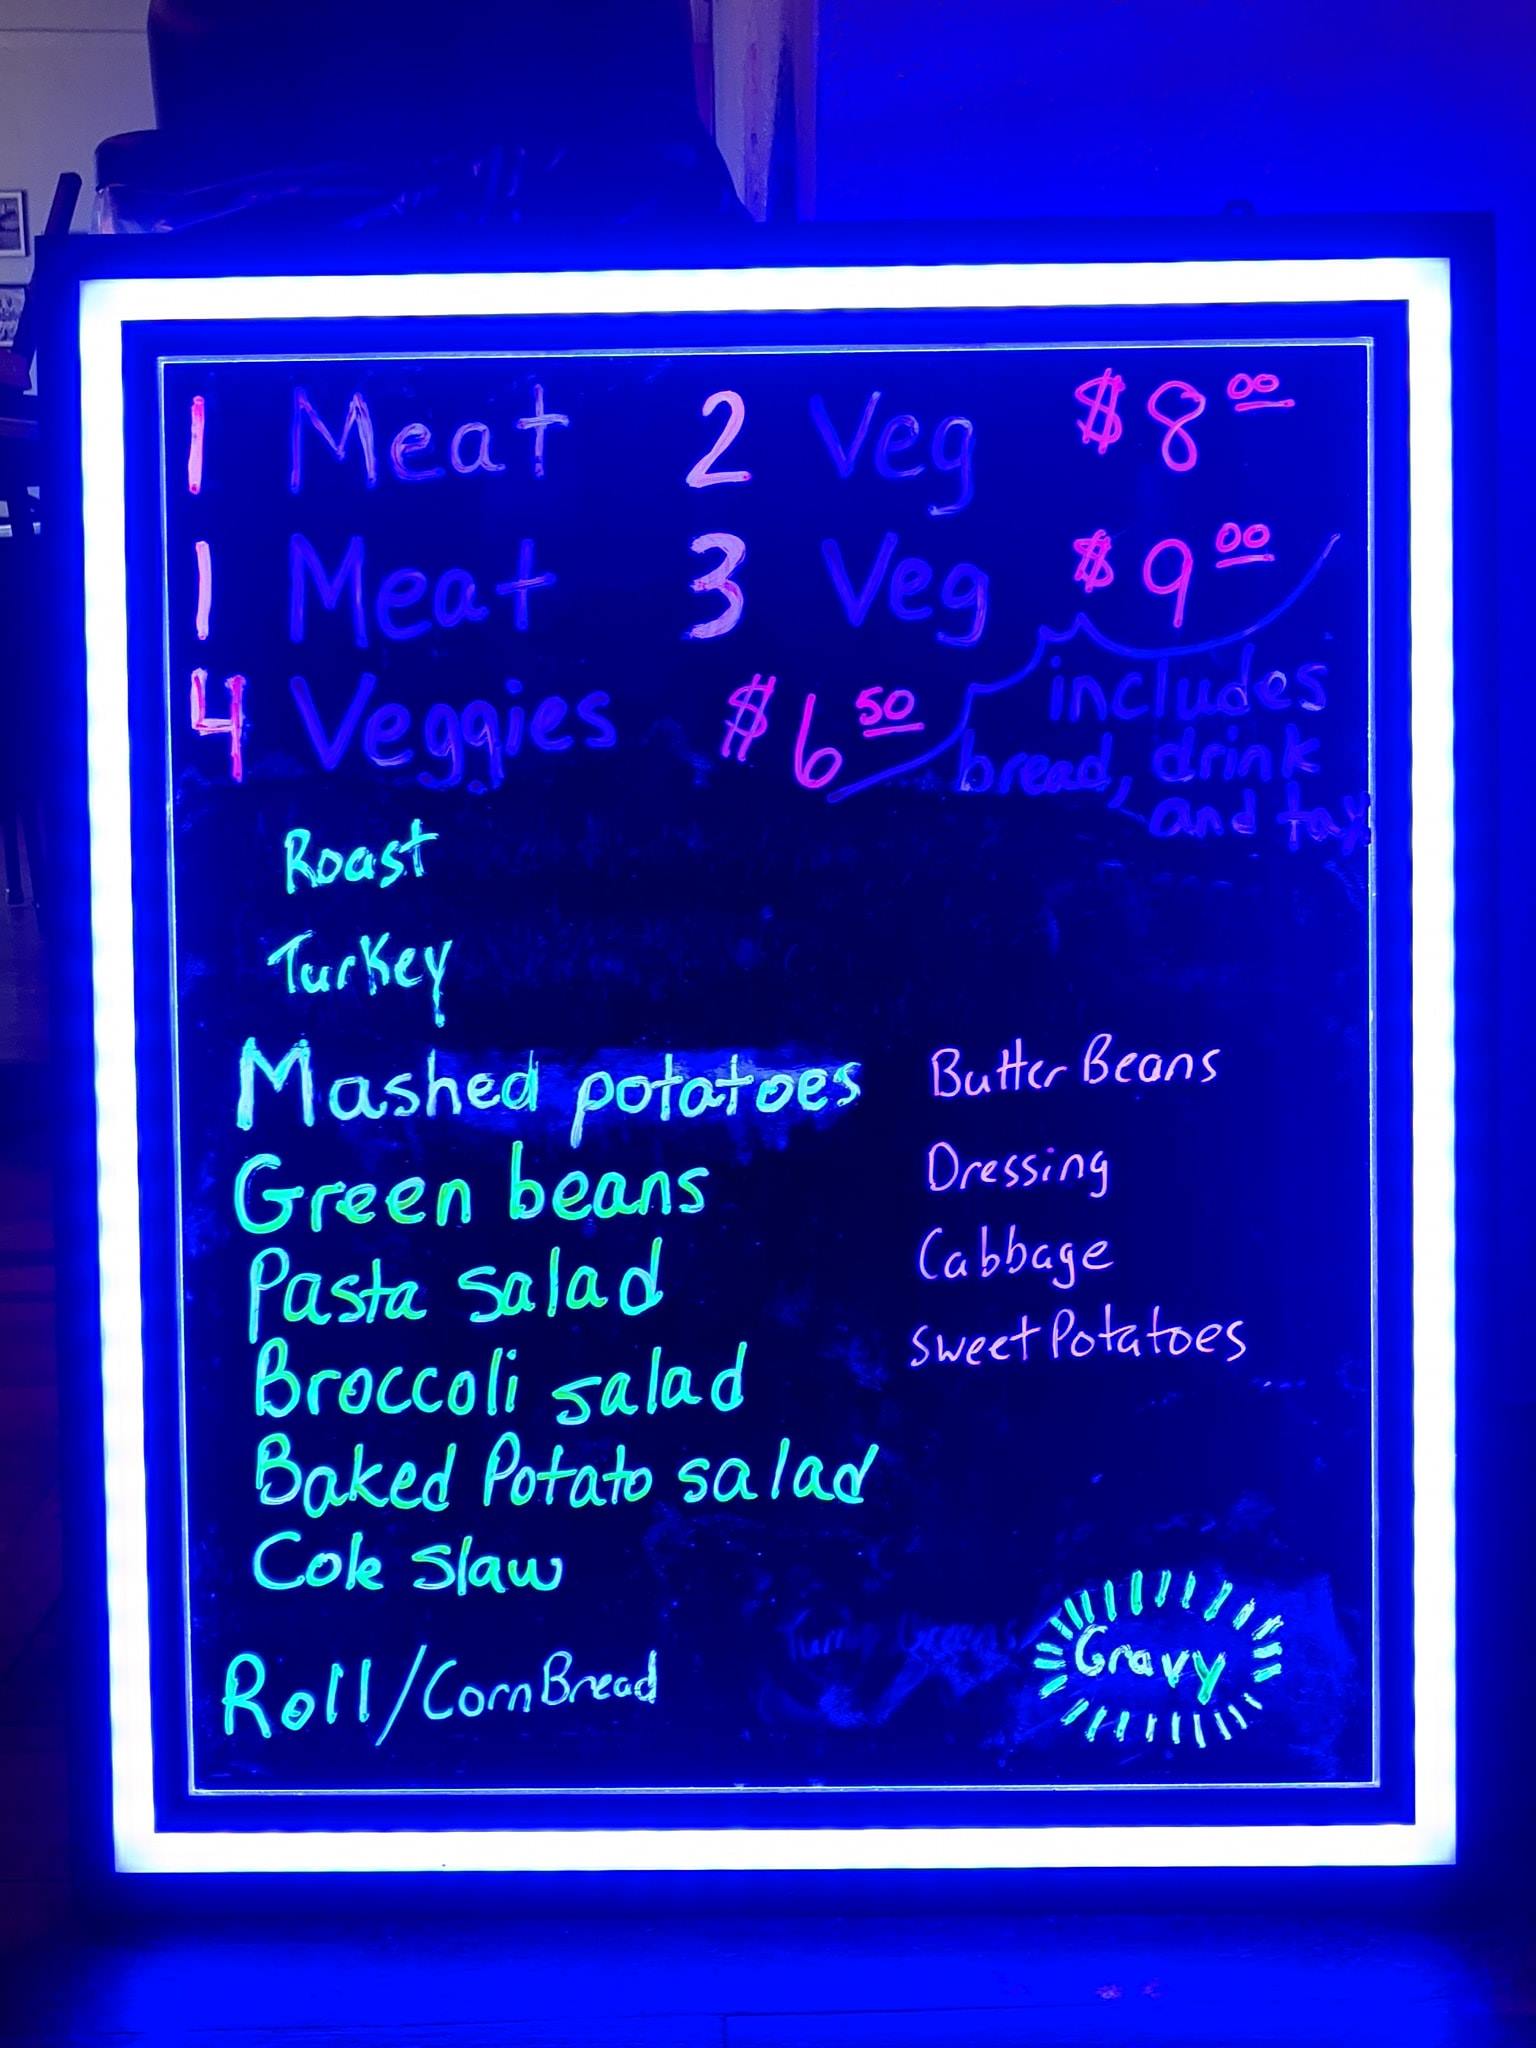 1 Meat 2 Veg $8.00
1 Meat 3 Veg $9.00
4 Veggies $6.50
includes
bread, drink
and tax
Roast
Turkey
Mashed potatoes
Green beans
Pasta salad
Broccoli salad
Baked Potato salad
Cole slaw
Roll/CornBread
Butter Beans
Dressing
Cabbage
sweet Potatoes
Gravy